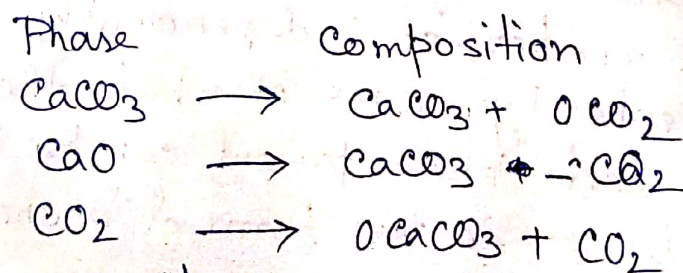 Phase Composition
CaCO3 → CaCO3 + 0 CO2
CaO → CaCO3 - CO2
CO2 → 0 CaCO3 + CO2